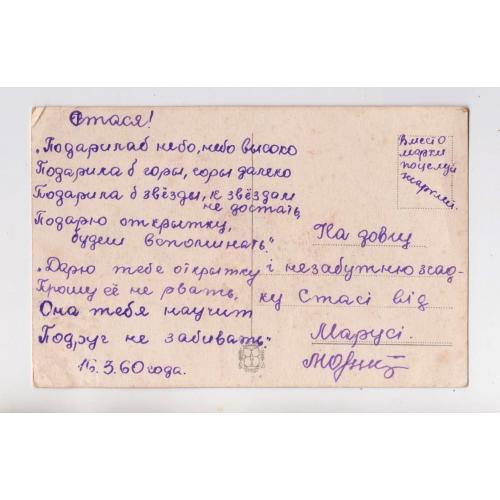 Стася!
„Подарила б небо, небо высоко
Подарила б горы, горы далеко
Подарила б звёзды, к звёздам
не достать,
Подарю открытку,
будеш вспоминать."
„Дарю тебе открытку
Прошу её не рвать,
Она тебя научит
Подруг не забивать."
16.3.60 года.
Вместо
марки
поцелуй
жаркий.
На довгу
і незабутню згад-
ку Стасі від
Марусі.